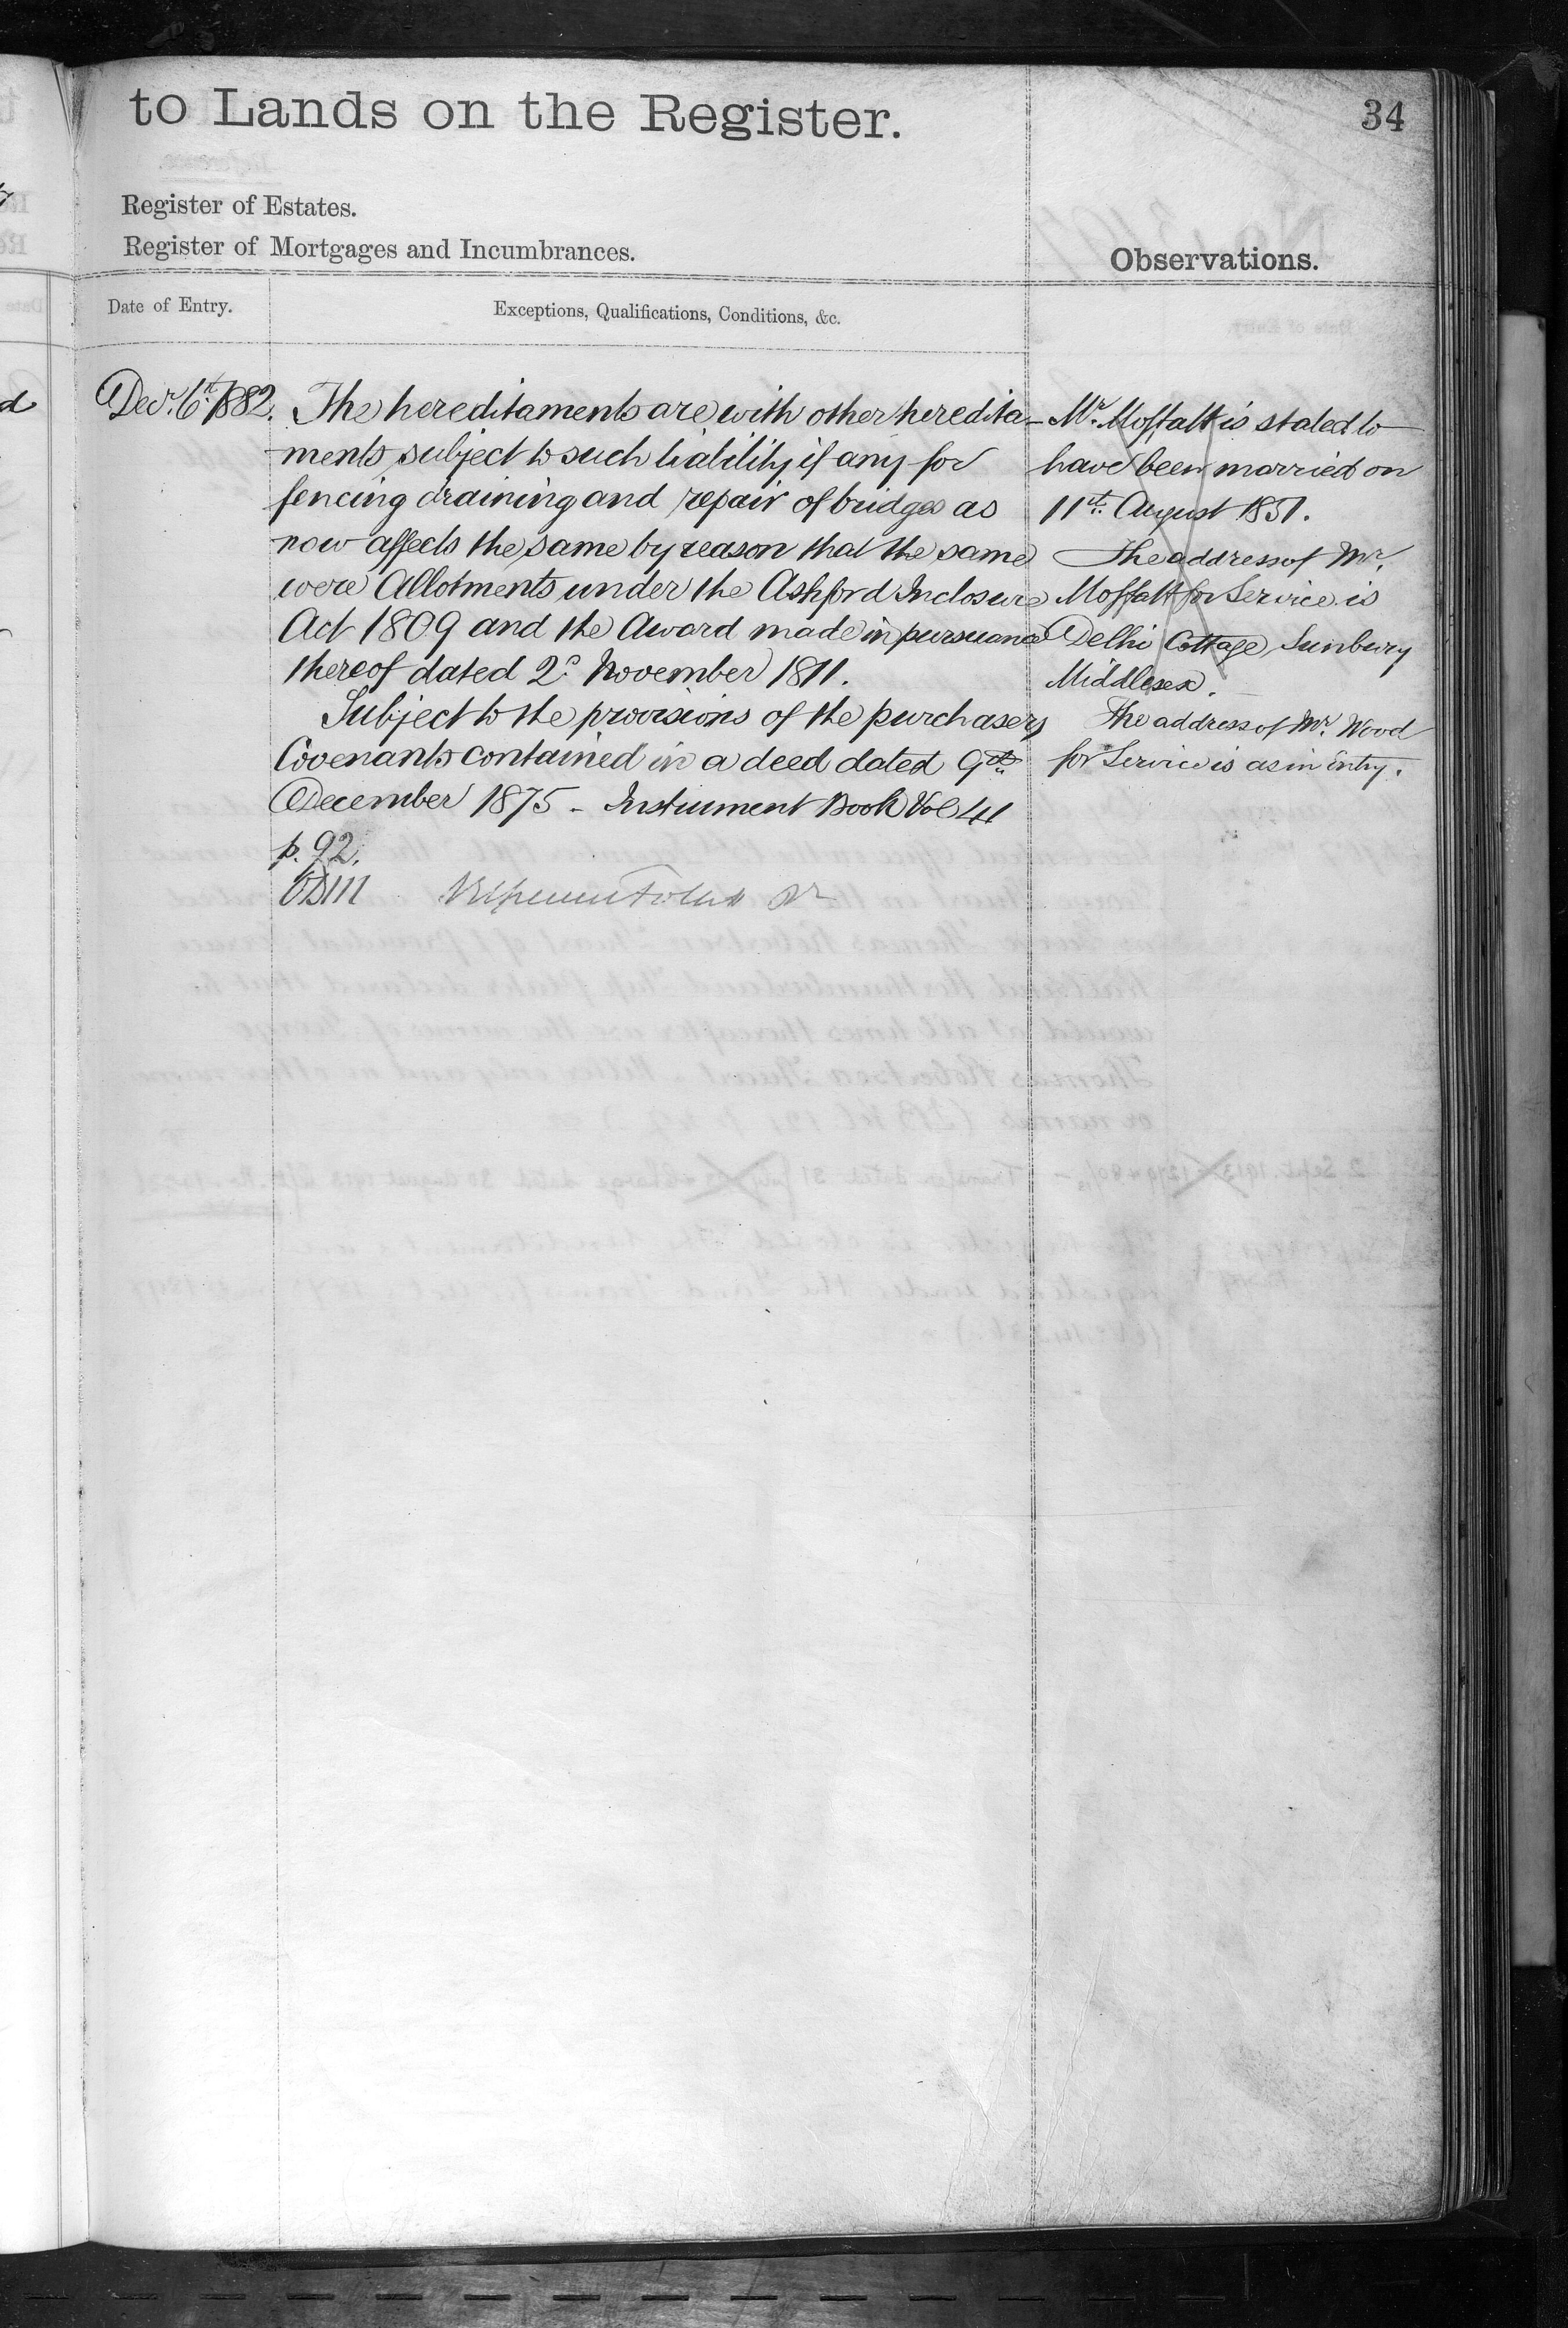 to Lands on the Register.
34
Register of Estates.
Register of Mortgages and Incumbrances.
Observations.
Date of Entry.
Exceptions, Qualifications, Conditions, &c.
Decr. 6th 1882.
The hereditaments are with other heredita-
ments subject to such liability if any for
fencing draining and repair of bridges as
now affects the same by reason that the same
were Allotments under the Ashford Inclosure
Act 1809 and the Award made in pursuance
thereof dated 2d November 1811.
Subject to the provisions of the purchasers
Covenants contained in a deed dated 9th
December 1875 - Instrument Book Vol 41
p. 92.
Mr. Moffatt is stated to
have been married on
11th August 1851.
The address of Mr.
Moffatt for Service is
Delhi Cottage, Sunbury
Middlesex.
The address of Mr. Wood
for Service is as in Entry.